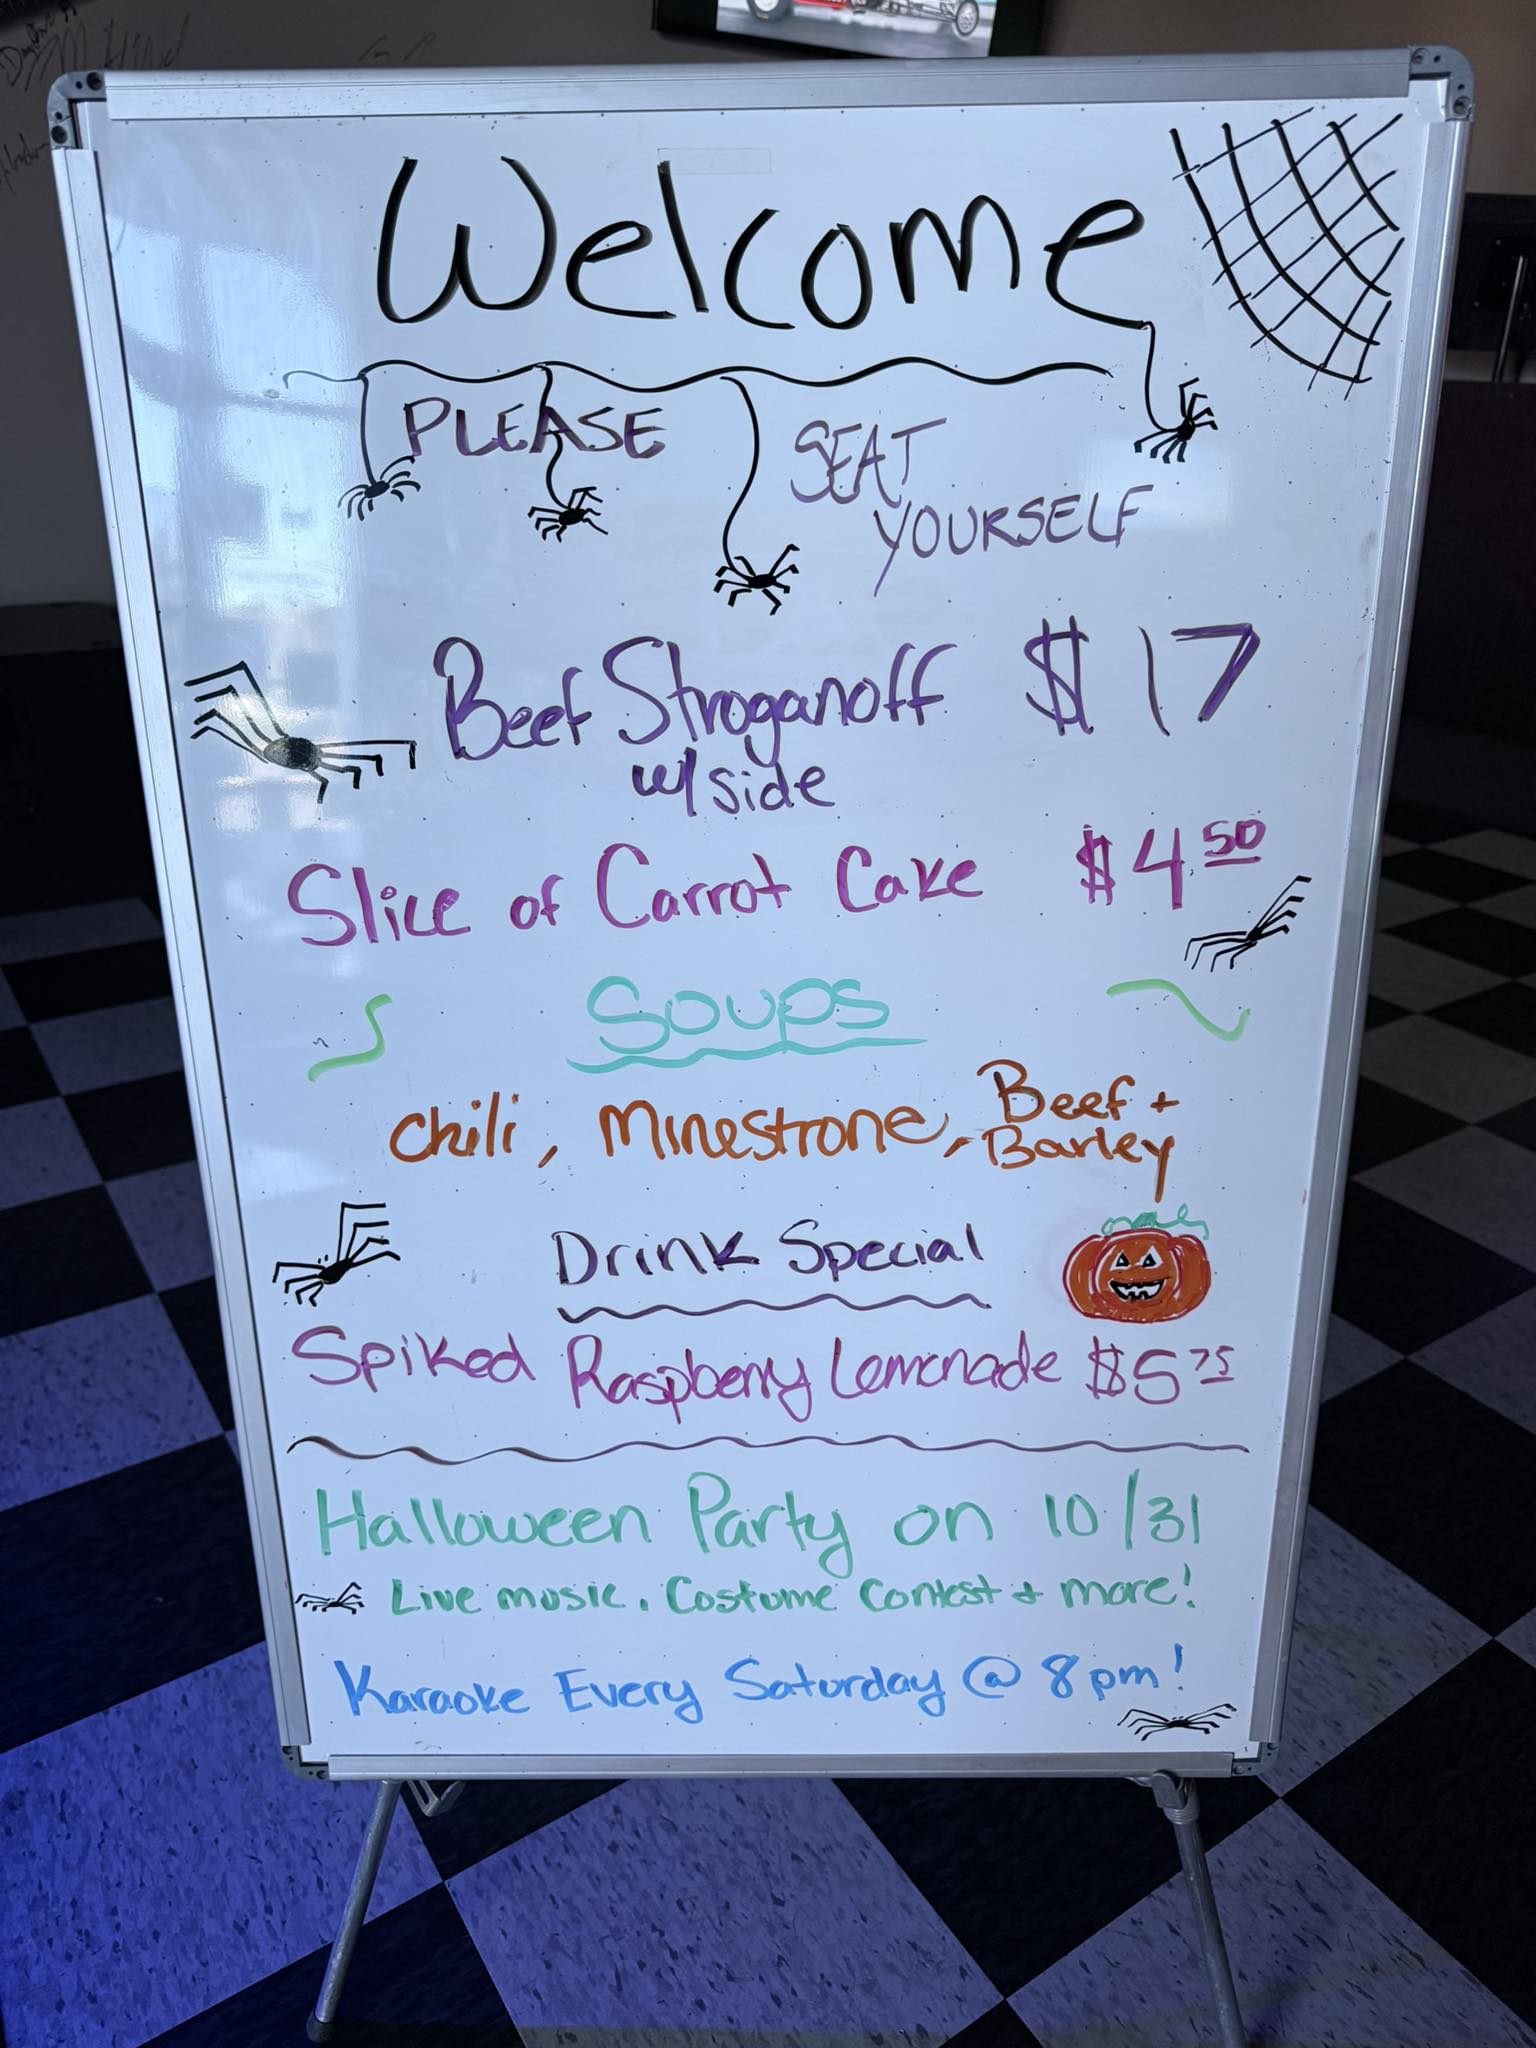 Welcome
PLEASE SEAT
YOURSELF
Beef Stroganoff $17
w/side
Slice of Carrot Cake $4.50
Soups
Chili, Minestrone, Beef +
Barley
Drink Special
Spiked Raspberry Lemonade $5.75
Halloween Party on 10/31
Live music, Costume Contest + more!
Karaoke Every Saturday @ 8pm!